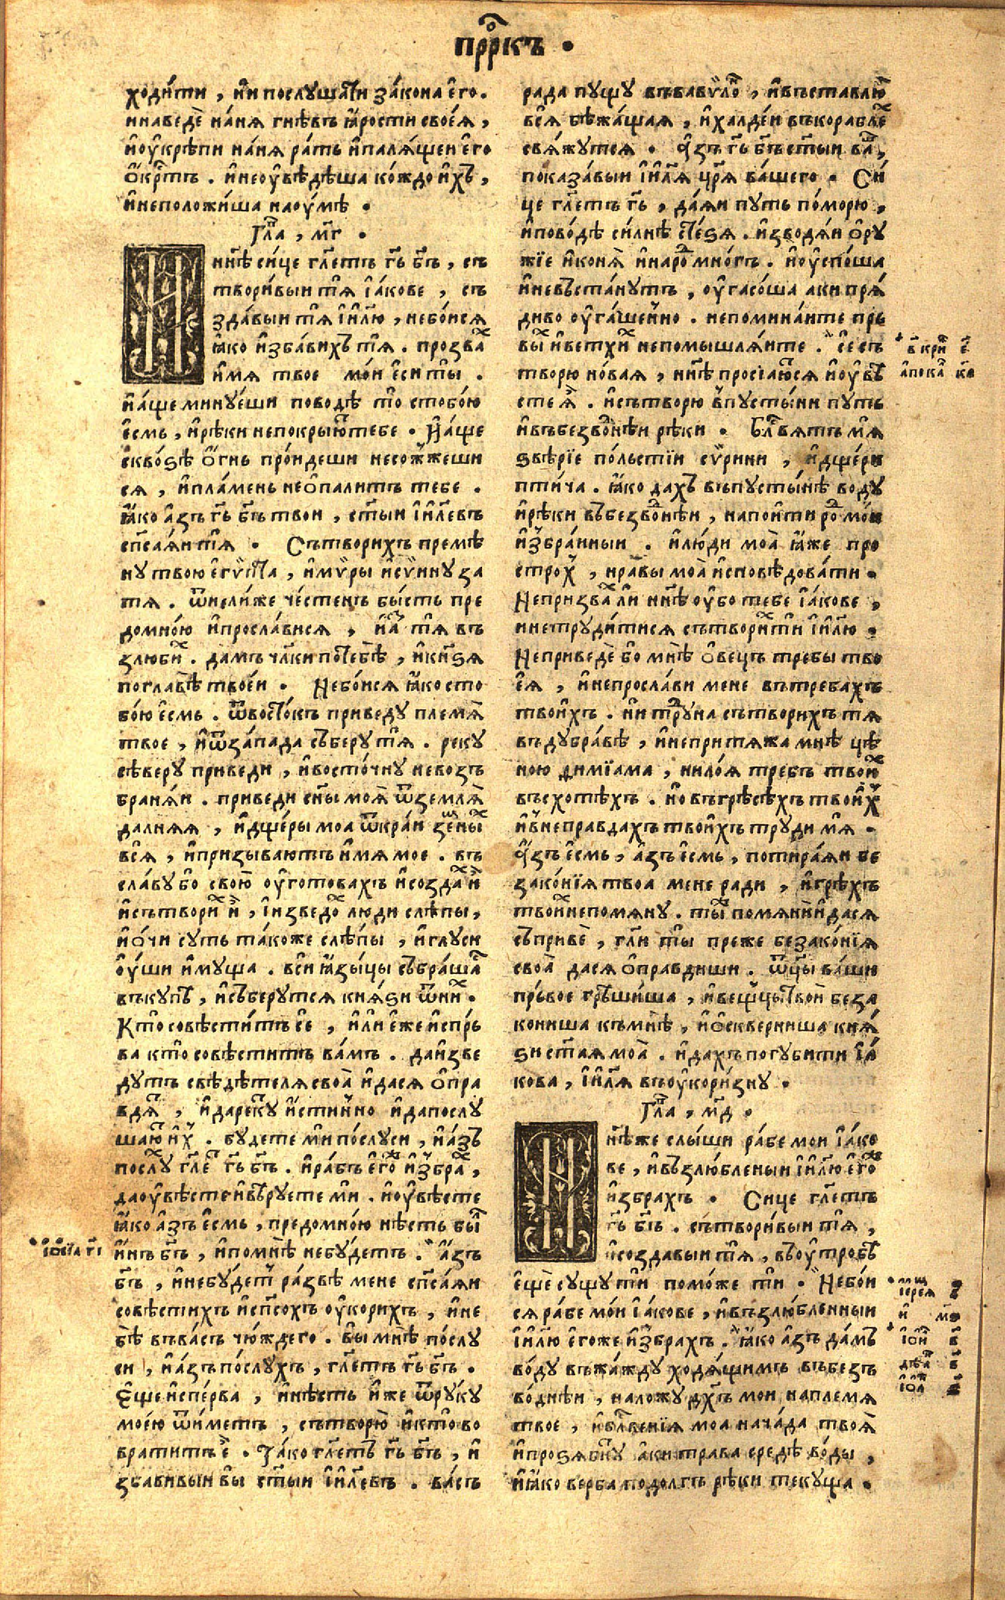 прⷪ҇ркъ •
ходи́ти , и҆ни послꙋшати зако́на є҆го .
и наведѐ на́ня гнѣвъ ꙗ҆рости своеꙗ̀ ,
и҆ ᲂу҆крѣпи на́ня ра́ть и҆ паля́щеи є҆го
ѻ҆́крⷭ҇тъ . и҆ не ᲂу҆вѣ́дѣша ко́ждо и҆хъ ,
и҆ не положи́ша на ᲂу҆мѣ •
Гла̀ , м҃г •
Нн҃ѣ си́це гл҃етъ гь҃ бг҃ъ , съ
твори́выи тѧ̀ і҆а́кове , съ
зда́выи тѧ̀ і҆и҃лю , не бо́исѧ
ꙗ҆́ко и҆зба́вихъ тѧ̀ . прозваⷯ
и҆́мѧ твое мо́и є҆си ты̀ .
и҆ а҆́ще минꙋ́еши поводѣ то̀ с тобо́ю
є҆́смь , и҆ рѣ́ки не покрыю́т тебе • И҆ а҆́ще
сквоꙁѣ̀ ѻ҆́гнь про́идеши не сожже́ши
сѧ , и҆ пла́мень не ѻ҆пали́тъ тебе .
ꙗ҆́ко а҆́зъ гь҃ бг҃ъ тво́и , ст҃ыи і҆и҃левъ
сп҃са́ѧи тѧ̀ • Сътвори́хъ премѣ
нꙋ твою̀ є҆гѵ́пта , и҆ мѵ́ры и҆ сѵ́инꙋ за
тѧ . ѿне́лиже че́стенъ бы́сть пре
домно́ю и҆ просла́висѧ , и҆ а҆ꙁ тѧ въ
злюбиⷯ . да́мъ чл҃ки по тебѣ̀ , и҆ кн҃ѕѧ
по главѣ̀ твое́и • Небо́исѧ ꙗ҆́ко с то
бо́ю є҆́смь . ѿ восто́къ приведꙋ пле́мѧ
твое , и҆ ѿ за́пада съберꙋ́ тѧ . рекꙋ
сѣ́верꙋ приведи , и҆ восто́чнꙋ не возъ
бранѧ́и . приведи сн҃ы моѧ̀ ѿ землѧ̀
да́лняѧ , и҆ дще́ры моа ѿ кра́и земны́
всѧ , и҆ призыва́ютъ и҆́мѧ мое . въ
сла́вꙋ бо свою̀ ᲂу҆гото́вахъ и҆ созда́ⷯ и҆̀
и҆ сътвориⷯ и҆̀ , і҆ изведоⷯ люди слѣпы ,
и҆ ѻ҆́чи сꙋть та́коже слѣпы , и҆ глꙋси
ᲂу҆́ши и҆мꙋща . вси ꙗ҆ꙁы́цы събра́шаⷭ
въкꙋпѣ , и҆ съберꙋ́тсѧ кня́ѕи ѿ ниⷯ •
Кто̀ совѣсти́тъ се , и҆ли є҆́же и҆спръ
ва кто̀ совѣсти́тъ ва́мъ . да и҆зве
дꙋтъ свѣдѣ́телѧ своа̀ и҆ да сѧ ѻ҆пра
вдѧⷮ , и҆ да рекꙋⷮ и҆́стинно и҆ да послꙋ
шаюⷮ и҆ⷯ . бꙋдете ми по́слꙋси , и҆ а҆́зъ
послꙋⷯ гл҃еⷮ гь҃ бг҃ъ . и҆ ра́бъ є҆гоⷤ и҆збраⷯ ,
да ᲂу҆вѣ́сте и҆ вѣ́рꙋете ми . и҆ ᲂу҆вѣ́сте
ꙗ҆́ко а҆́зъ є҆́смь , предомно́ю нѣ́сть бы́лⷭ
и҆́нъ бг҃ъ , и҆ по мнѣ̀ не бꙋ́детъ . А҆́зъ
бг҃ъ , и҆ не бꙋ́детⷭ ра́звѣ мене сп҃са́ѧи
совѣсти́хъ и҆ сп҃со́хъ ᲂу҆кори́хъ , и҆ не
бѣ̀ въ ва́съ чю́ждего . Вы мнѣ̀ по́слꙋ
си , и҆ а҆́зъ по́слꙋхъ , гл҃етъ гь҃ бг҃ъ .
Є҆ще и҆спе́рва , и҆ нѣ́сть и҆́же ѿ рꙋкꙋ
мое́ю ѿи́метъ , сътворю̀ и҆ кто̀ во
брати́тъ є҆̀ . Та́ко гл҃етъ гь҃ бг҃ъ , и҆
ꙁба́вивыи вы ст҃ыи і҆и҃левъ . ва́съ
ра́да пꙋщꙋ въ вавѵ́лоⷩ , и҆ въста́влю
всѧ̀ бѣжа́щаѧ , и҆ халде́и в корабле́ⷯ
свѧ́жꙋтсѧ . А҆́зъ гь҃ бг҃ъ ст҃ыи ваⷲ ,
показа́выи і҆и҃лѧ цр҃ѧ ва́шего . Си́
це гл҃етъ гь҃ , да́ѧи пꙋ́ть по мо́рю ,
и҆ по во́дѣ си́лнѣ сте́ѕѧ . и҆зводѧ́и ѻ҆рꙋ
жїе и҆ ко́нѧ и҆ наро́ⷣ мно́гъ . и҆ ᲂу҆спо́ша
и҆ не въста́нꙋтъ , ᲂу҆гасо́ша аки прѧ́
диво ᲂу҆га́шенно . не помина́ите пръ
вы́ⷯ и҆ ве́тхиⷯ не помышлѧ́ите . сѐ съ
творю̀ но́ваѧ , нн҃ѣ просїа́ютъ и҆ ᲂу҆вѣ
сте ѧ҆̀ . и҆ сътворю в пꙋсты́ни пꙋ́ть
и҆ въ безво́днѣи рѣ́ки . Бл҃вѧ́тъ мѧ
ѕвѣ́рїе по́льстїи сѵ́рини , и҆ дще́ри
пти́ча . ꙗ҆́ко да́хъ въ пꙋсты́нѣ во́дꙋ
и҆ рѣ́ки въ безво́днѣи , напои́ти роⷣ мо́и
и҆збра́нныи . и҆ лю́ди моа̀ ꙗ҆́же про
строхⷯ , нра́вы моа̀ и҆сповѣ́довати .
Не призваⷯ ли нн҃ѣ ᲂу҆бо тебе і҆а́кове ,
и не трꙋди́тисѧ сътвориⷯ ти і҆и҃лю .
Не приведѐ бо мнѣ̀ ѻ҆ве́цъ тре́бы тво
еѧ̀ , и҆ не просла́ви мене въ тре́бахъ
твои́хъ . ни трꙋда сътвори́хъ тѧ
въ дꙋбра́вѣ , и҆ не притѧ́жа мнѣ̀ цѣ
но́ю ѳимїама , ни ло́ѧ тре́бъ твоиⷯ
въсхотѣ́хъ . но въ грѣсѣ́хъ твои́ⷯ
и҆ в непра́вдахъ твои́хъ трꙋди́ мѧ .
А҆́зъ є҆́смь , а҆́зъ є҆́смь , потира́ѧи бе
зако́нїѧ твоа мене ра́ди , и҆ грѣ́хъ
твои́х не помѧнꙋ̀ . ты̀ помѧнѝ и҆ да сѧ
съ привѐ , гл҃и ты̀ пре́же безако́нїѧ
своа̀ да сѧ ѻ҆правди́ши . ѿц҃ы ва́ши
пръвое грѣши́ша , и҆ вещцы твои́ беза
кониша къ мнѣ , и҆ ѻ҆скверниша кнѧ́
ѕи ст҃аѧ моа̀ . и҆ да́хъ погꙋби́ти і҆а́
кова , і҆и҃лѧ въ ᲂу҆кори́знꙋ •
Гла̀ , м҃д •
Нн҃ѣже слы́ши ра́бе мо́и і҆а́ко
ве , и҆ възлю́бленыи і҆и҃лю є҆го́ⷤ
и҆збра́хъ • Си́це гл҃етъ
гь҃ бг҃ъ . сътвори́выи тѧ̀ ,
и҆ созда́выи тѧ̀ , въ ᲂу҆тро́бѣ
є҆щѐ сꙋ́щꙋ ти помо́же ти • Не бо́и
сѧ ра́бе мо́и і҆а́кове , и҆ възлю́бленныи
і҆и҃лю є҆го́же и҆збра́хъ . ꙗ҆́ко а҆́зъ да́мъ
во́дꙋ въ жа́ждꙋ ходѧ́щимъ въ безъ
во́днѣи , наложꙋ̀ дх҃ъ мо́и на пле́мѧ
твое , и҆ бл҃ве́нїѧ моа на ча́да твоѧ̀
и҆ прозѧ́бнꙋⷮ аки трава̀ средѣ̀ во́ды ,
и҆ ꙗ҆́ко верба̀ по до́лгъ рѣ́ки текꙋ́ща .
в҃ кри́ⷩ є҃
а҆пока́ⷧ к҃а
і҆ере́ѧ